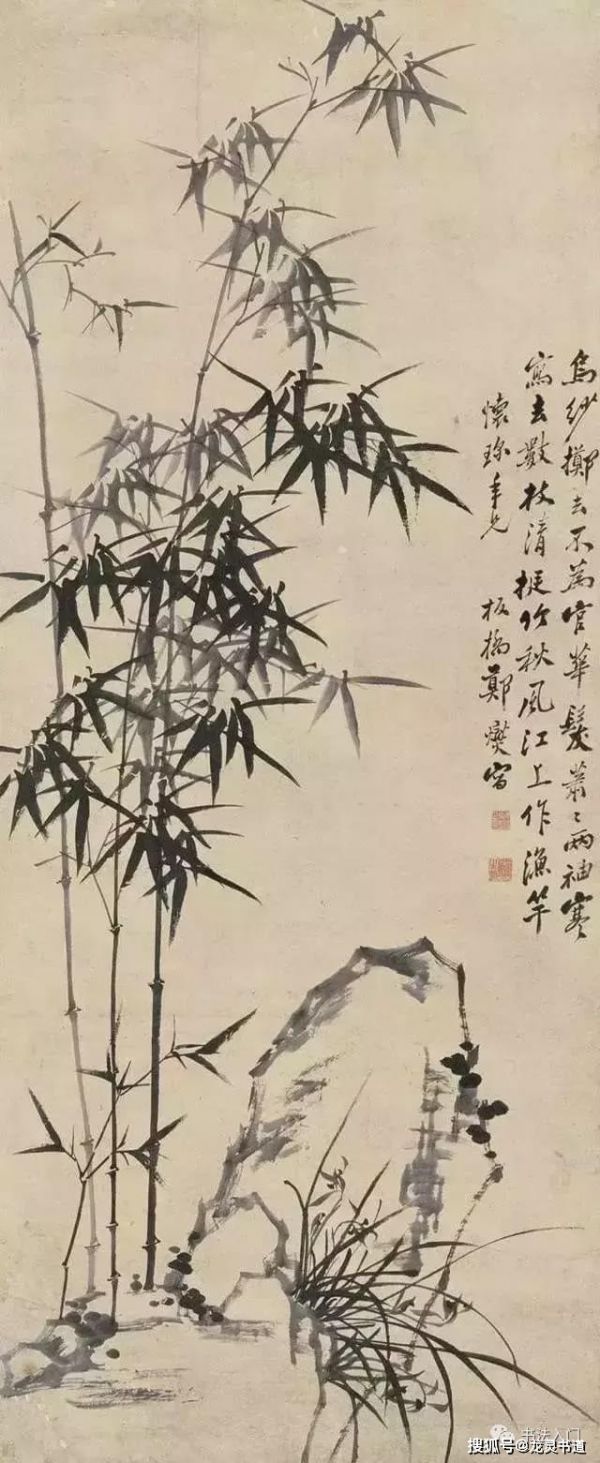 烏紗擲去不為官華髮蕭〻兩袖寒
寫去數枝清挺竹秋風江上作漁竿
懷珎年兄 板橋鄭燮寫
书法入门
搜狐号@龙灵书道